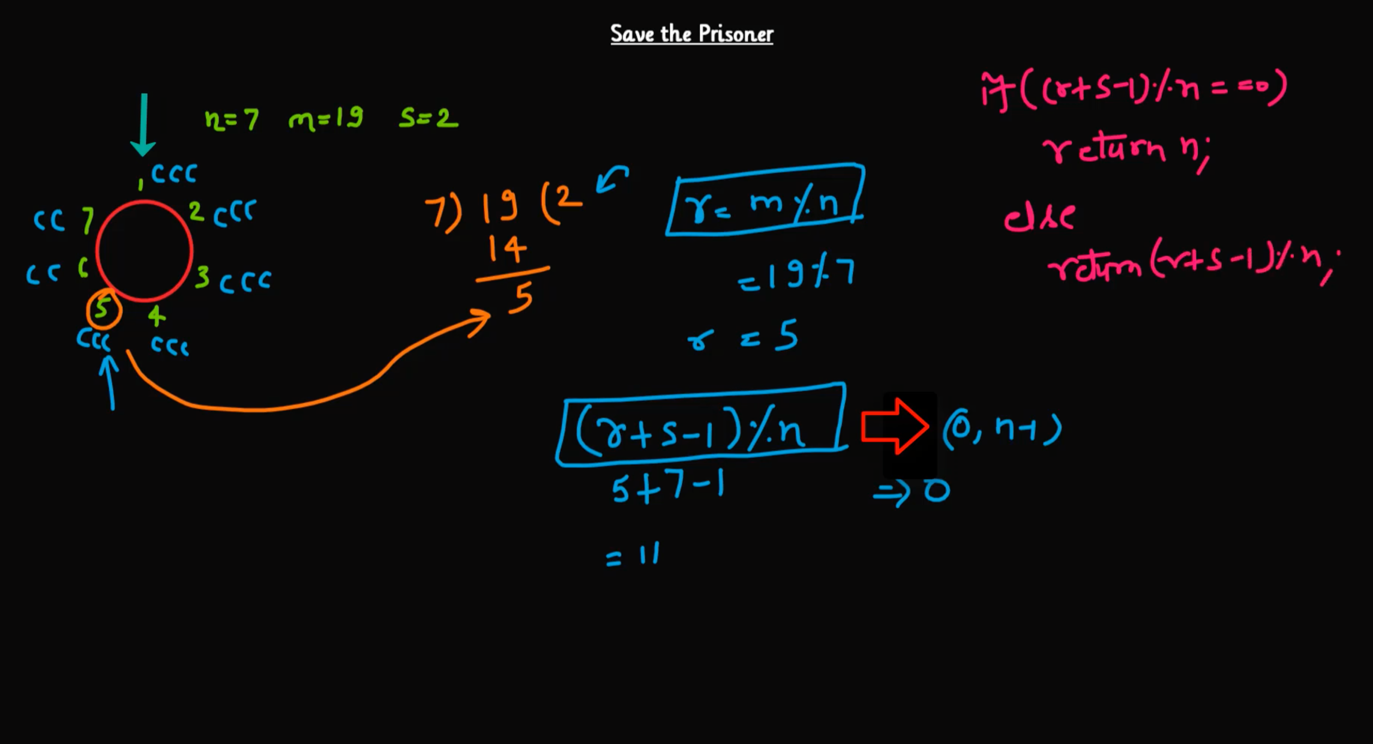 Save the Prisoner
n=7 m=19 s=2
1 CCC
2 CCC
3 CCC
4
CCC
5
CCC
CC 6
CC 7
7) 19 (2
14
5
r = m % n
= 19 % 7
r = 5
(r+s-1) % n
(0, n-1)
5+7-1
=> 0
= 11
if ((r+s-1) % n == 0)
return n;
else
return (r+s-1) % n;